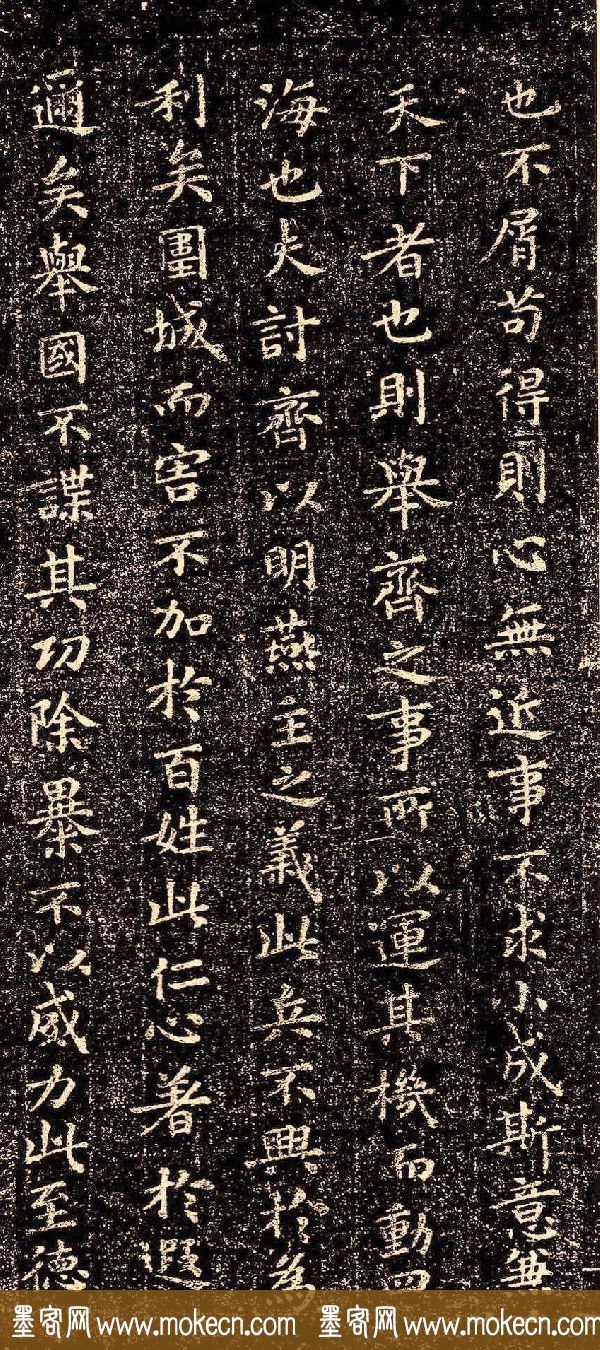 也不屑苟得則心無近事不求小成斯意兼
天下者也則舉齊之事所以運其機而動四
海也夫討齊以明燕主之義此兵不興於為
利矣圍城而害不加於百姓此仁心著於遐
邇矣舉國不謀其功除暴不以威力此至德
墨客网 www.mokecn.com 墨客网 www.mokecn.com